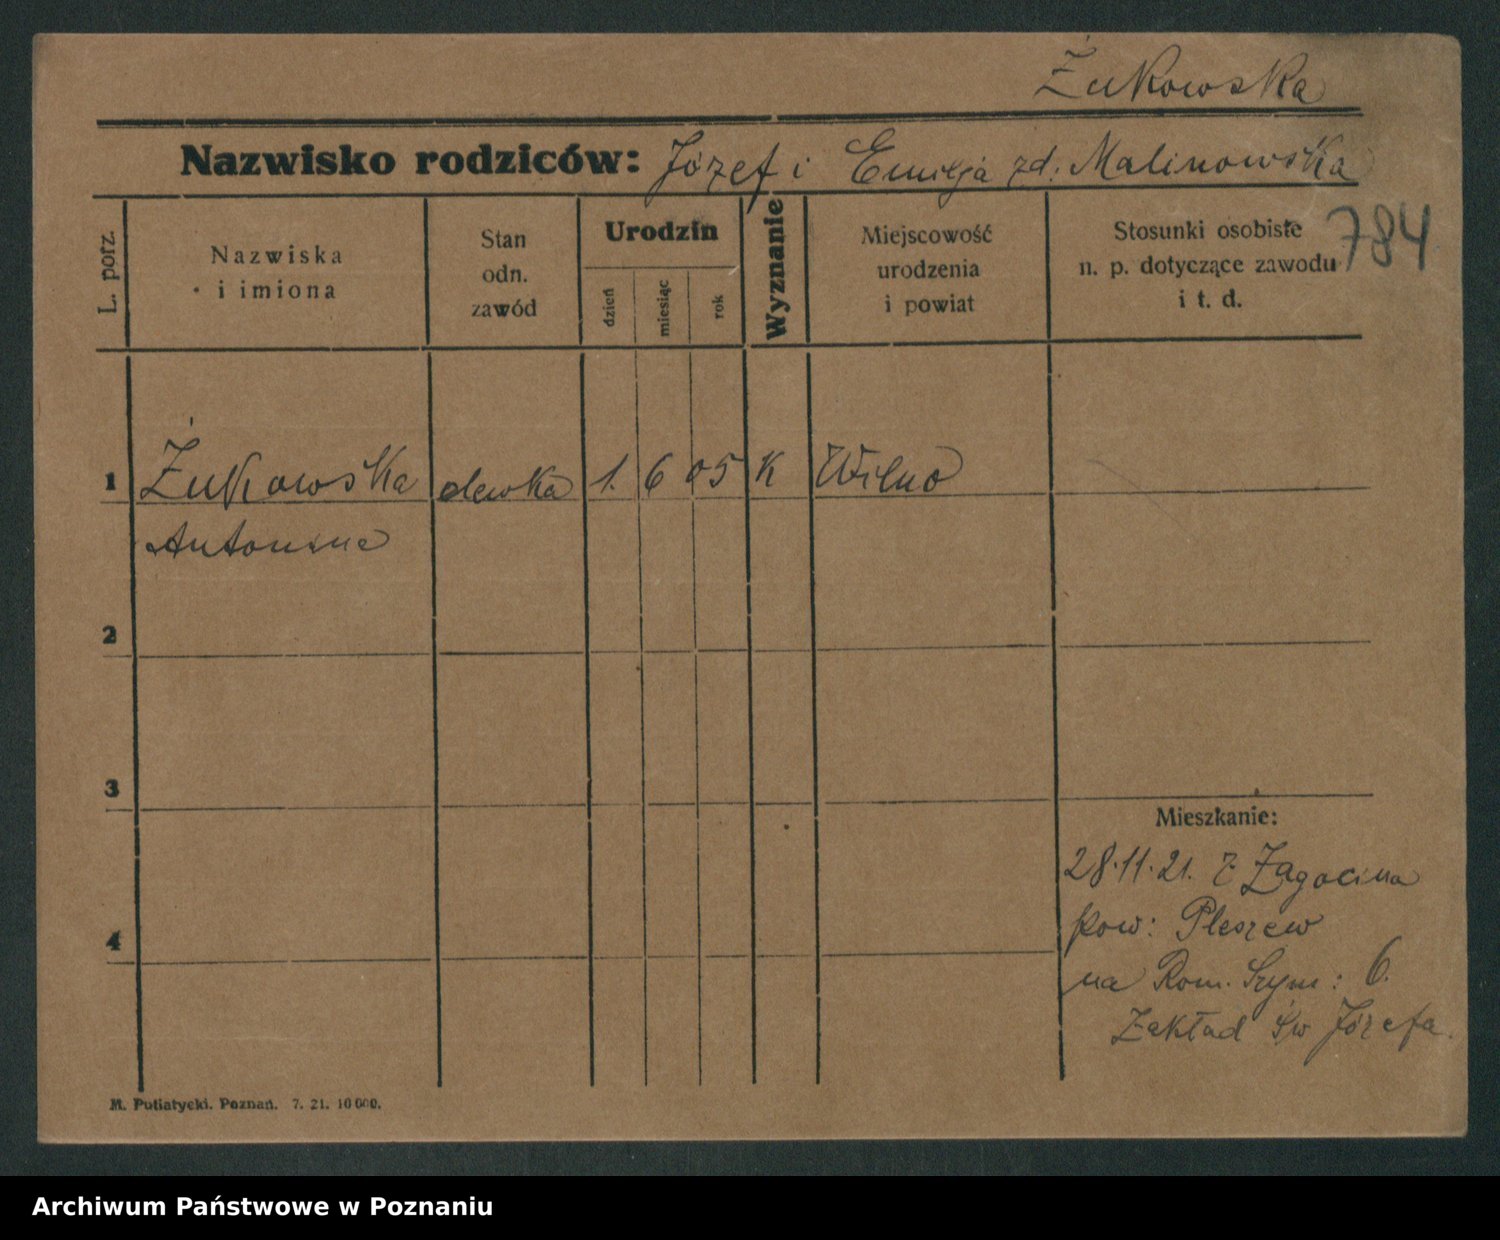 Żukowska
Nazwisko rodziców: Józef i Emilja zd: Malinowska
784
L. porz.
Nazwiska
i imiona
Stan
odn.
zawód
Urodzin
dzień
miesiąc
rok
Wyznanie
Miejscowość
urodzenia
i powiat
Stosunki osobiste
n. p. dotyczące zawodu
i t. d.
1 Żukowska 1. 6 05 K Wilno
Antonina
2
3
Mieszkanie:
28.11.21. z Żagocina
pow: Pleszew
4
na Rom. Szym: 6.
Zakład Św Józefa.
M. Putiatycki. Poznań. 7. 21. 10 000.
Archiwum Państwowe w Poznaniu